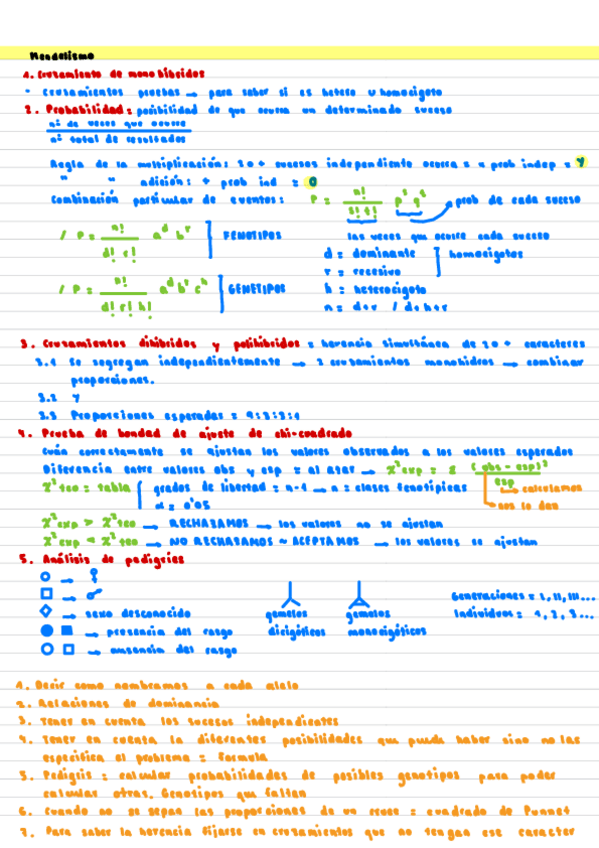 Mendelismo
1. Cruzamiento de monohíbridos
- Cruzamientos pruebas → para saber si es hetero u homocigoto
2. Probabilidad: posibilidad de que ocurra un determinado suceso
nº de veces que ocurre
nº total de resultados
Regla de la multiplicación: 2 o + sucesos independiente ocurra = × prob indep = Y
" " adición: + prob ind = O
Combinación particular de eventos: P = n! / s! t! p^s q^t → prob de cada suceso
las veces que ocurre cada suceso
/ P = n! / d! r! a^d b^r ] FENOTIPOS
d = dominante ] homocigotos
r = recesivo
/ P = n! / d! r! h! a^d b^r c^h ] GENOTIPOS
h = heterocigoto
n = d+r / d+h+r
3. Cruzamientos dihíbridos y polihíbridos = herencia simultánea de 2 o + caracteres
3.1 Se segregan independientemente → 2 cruzamientos monohidros → combinar
proporciones.
3.2 Y
3.3 Proporciones esperadas = 9:3:3:1
4. Prueba de bondad de ajuste de chi-cuadrado
Cuán correctamente se ajustan los valores observados a los valores esperados
Diferencia entre valores obs y esp = al azar → χ² exp = Σ (obs - esp)² / esp
χ² teo = tabla grados de libertad = n-1 → n = clases fenotípicas
→ calculamos
α = 0'05
→ nos lo dan
χ² exp > χ² teo → RECHAZAMOS → los valores no se ajustan
χ² exp < χ² teo → NO RECHAZAMOS ~ ACEPTAMOS → los valores se ajustan
5. Análisis de pedigríes
○ → ♀
□ → ♂
◇ → sexo desconocido
● ■ → presencia del rasgo
○ □ → ausencia del rasgo
gemelos gemelos
dicigóticos monocigóticos
Generaciones = I, II, III...
Individuos = 1, 2, 3...
1. Decir como nombramos a cada alelo
2. Relaciones de dominancia
3. Tener en cuenta los sucesos independientes
4. Tener en cuenta la diferentes posibilidades que pueda haber sino no las
especifica el problema = formula
5. Pedigris = calcular probabilidades de posibles genotipos para poder
calcular otras. Genotipos que faltan
6. Cuando no se sepan las proporciones de un cruce = cuadrado de Punnet
7. Para saber la herencia fijarse en cruzamientos que no tengan ese caracter